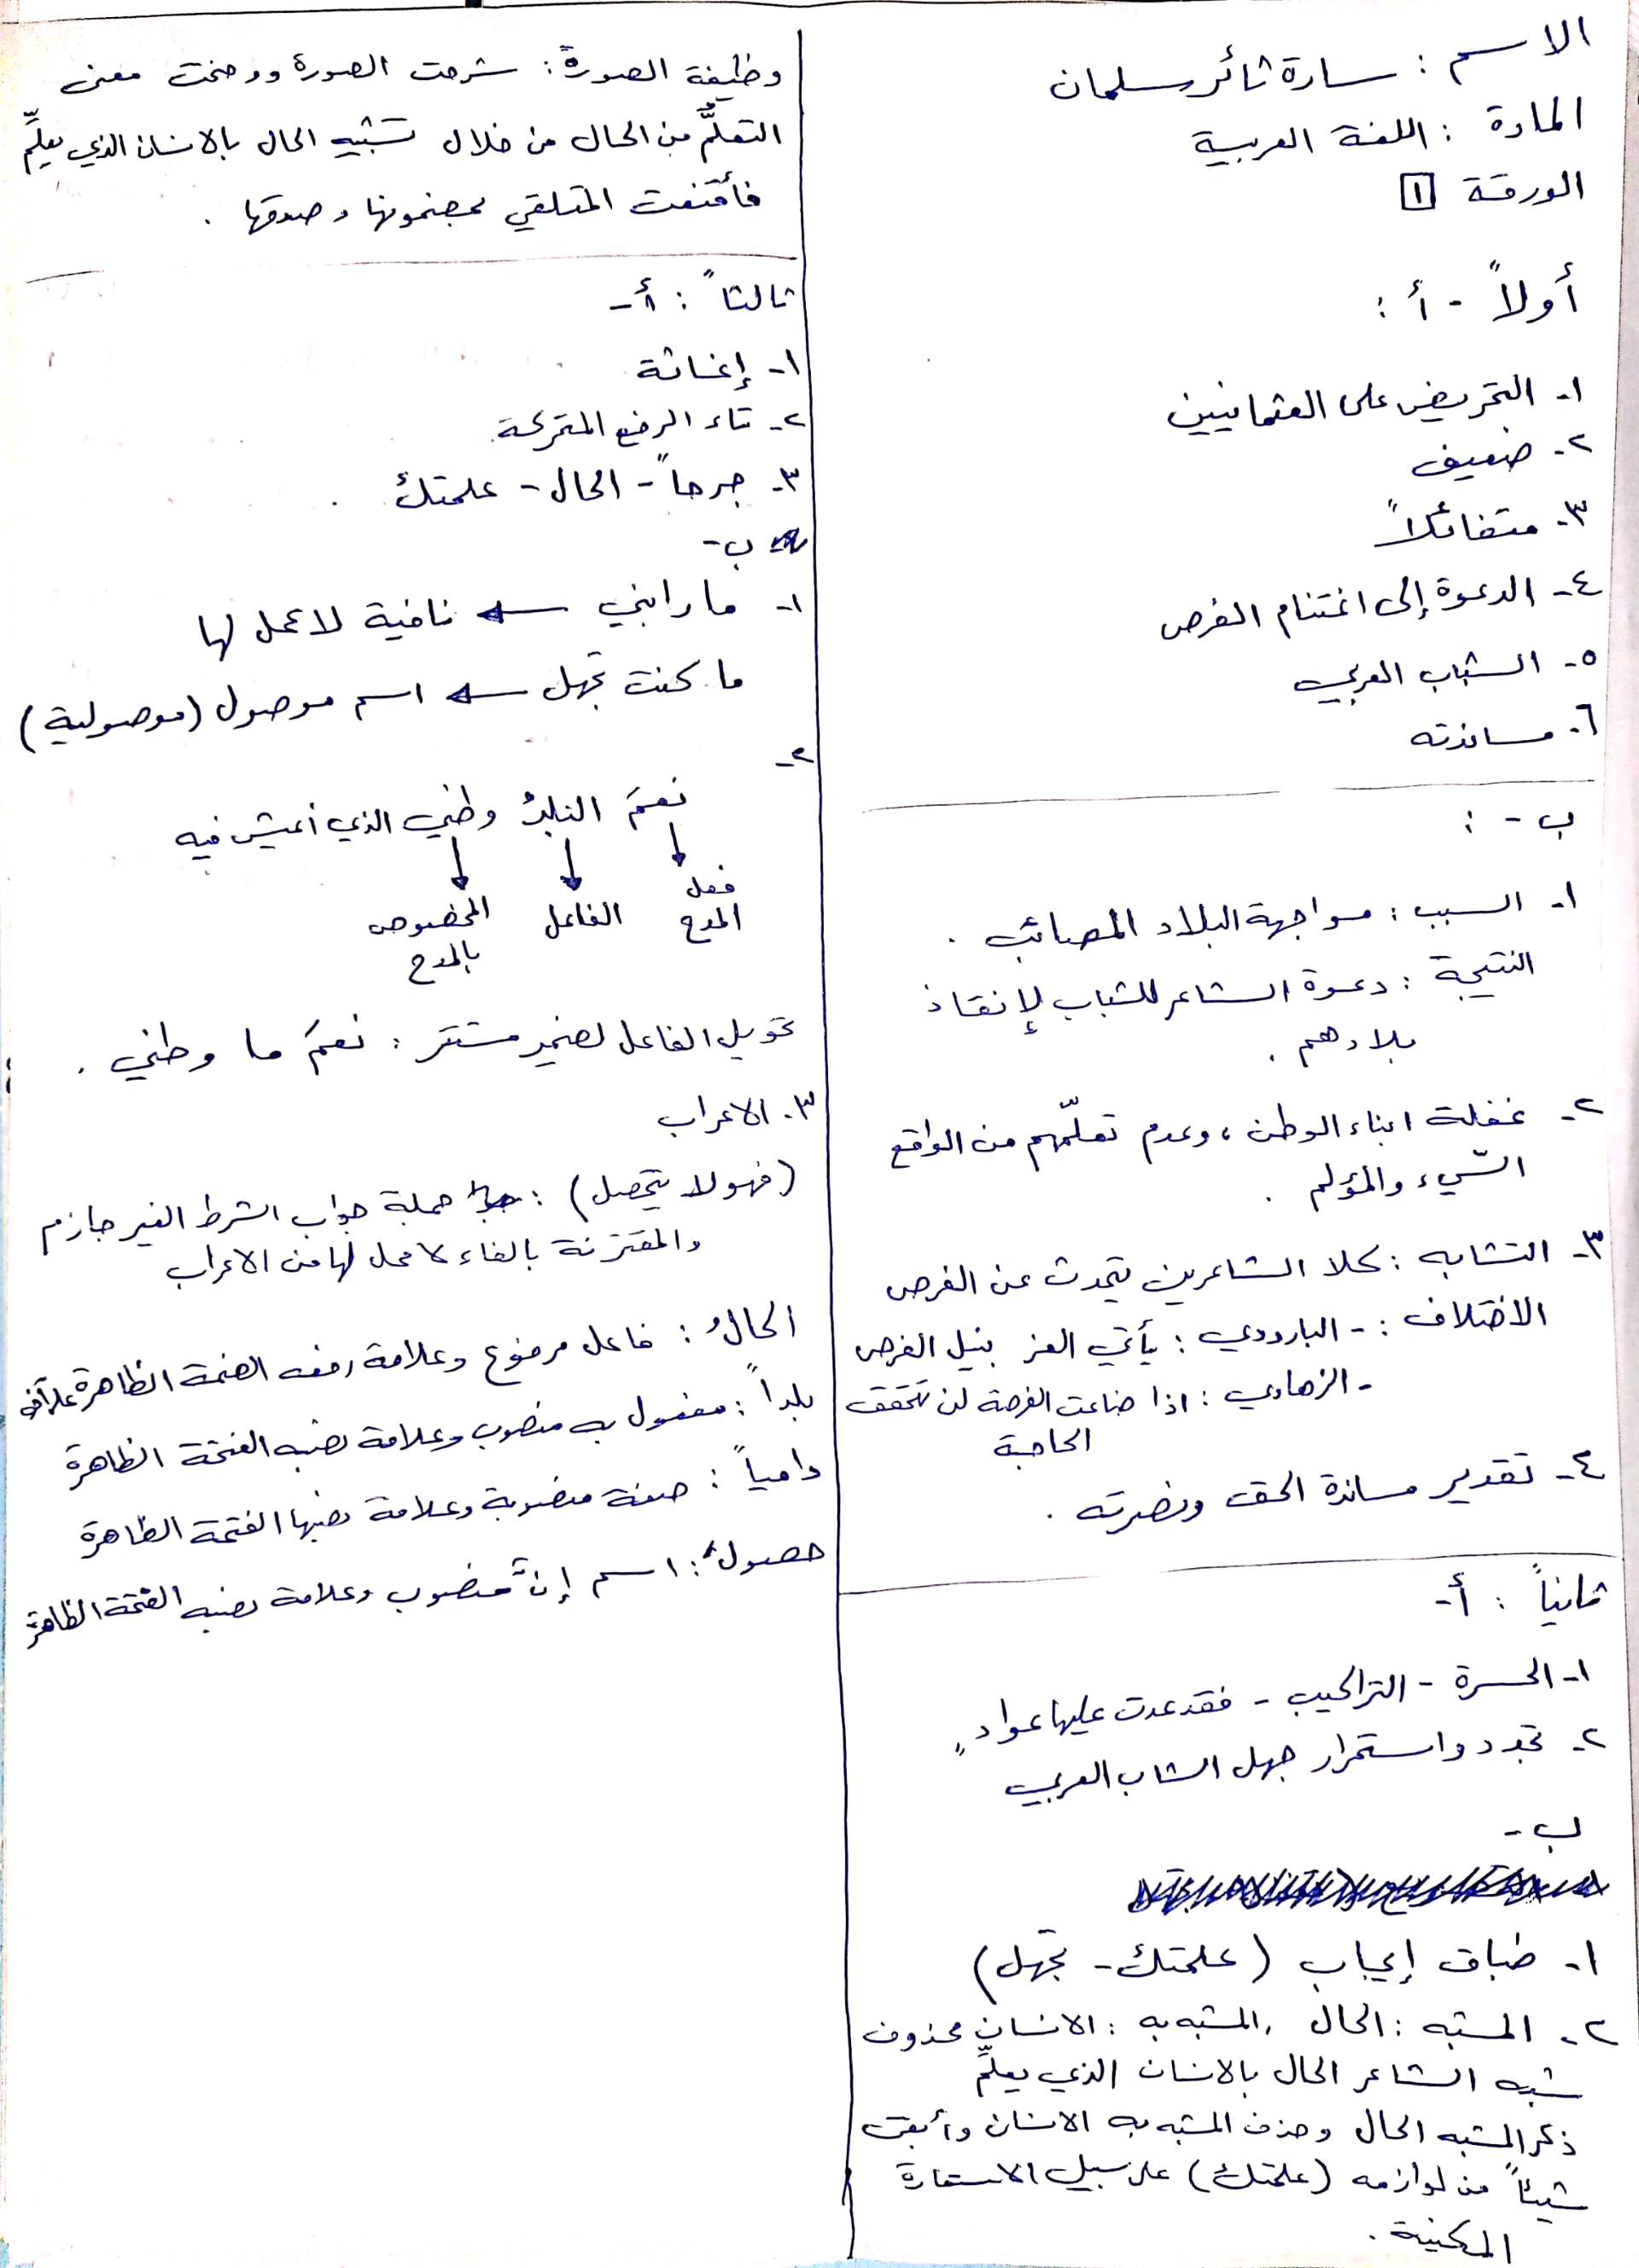 الاسم : سارة ثائر سلمان
المادة : اللغة العربية
الورقة ١
أولاً - أ :
١- التحريض على العثمانيين
٢- ضعيف
٣- متفائلاً
٤- الدعوة إلى اغتنام الفرص
٥- الشباب العربي
٦- مساندته
ب - :
١- السبب : مواجهة البلاد المصائب .
النتيجة : دعوة الشاعر للشباب لإنقاذ
بلادهم .
٢- غفلة ابناء الوطن ، وعدم تعلّمهم من الواقع
السّيء والمؤلم .
٣- التشابه : كلا الشاعرين يتحدث عن الفرص
الاختلاف : - البارودي : يأتي العز بنيل الفرص
- الزهاوي : اذا ضاعت الفرصة لن تتحقق
الحاجة
٤- تقدير مساندة الحق ونصرته .
ثانياً : أ-
١- الحسرة - التراكيب - فقد عدت عليها عوادٍ
٢- تجدد واستمرار جهل الشاب العربي
ب -
١- طباق إيجاب (علمتك - تجهل)
٢- المشبه : الحال , المشبه به : الانسان محذوف
شبه الشاعر الحال بالانسان الذي يعلِّم
ذكر المشبه الحال وحذف المشبه به الانسان وأبقى
شيئاً من لوازمه (علمتك) على سبيل الاستعارة
المكنية .
وظيفة الصورة : شرحت الصورة ووضحت معنى
التعلُّم من الحال من خلال تشبيه الحال بالانسان الذي يعلِّم
فأقنعت المتلقي بمضمونها وصدقها .
ثالثاً : أ -
١- إغاثة
٢- تاء الرفع المتحركة
٣- جرحاً - الحال - علمتك
ب -
١- ما رابني ← نافية لا عمل لها
ما كنت تجهل ← اسم موصول (موصولية)
٢-
نعمَ البلدُ وطني الذي أعيش فيه
فعل المدح الفاعل المخصوص بالمدح
تحويل الفاعل لضمير مستتر : نعمَ ما وطني .
٣- الاعراب
(فهو لا يتحصل) : جملة جواب الشرط الغير جازم
والمقترنة بالفاء لا محل لها من الاعراب
الحالُ : فاعل مرفوع وعلامة رفعه الضمة الظاهرة على آخره
بلداً : مفعول به منصوب وعلامة نصبه الفتحة الظاهرة
دامياً : صفة منصوبة وعلامة نصبها الفتحة الظاهرة
حصولَ : اسم إنّ منصوب وعلامة نصبه الفتحة الظاهرة